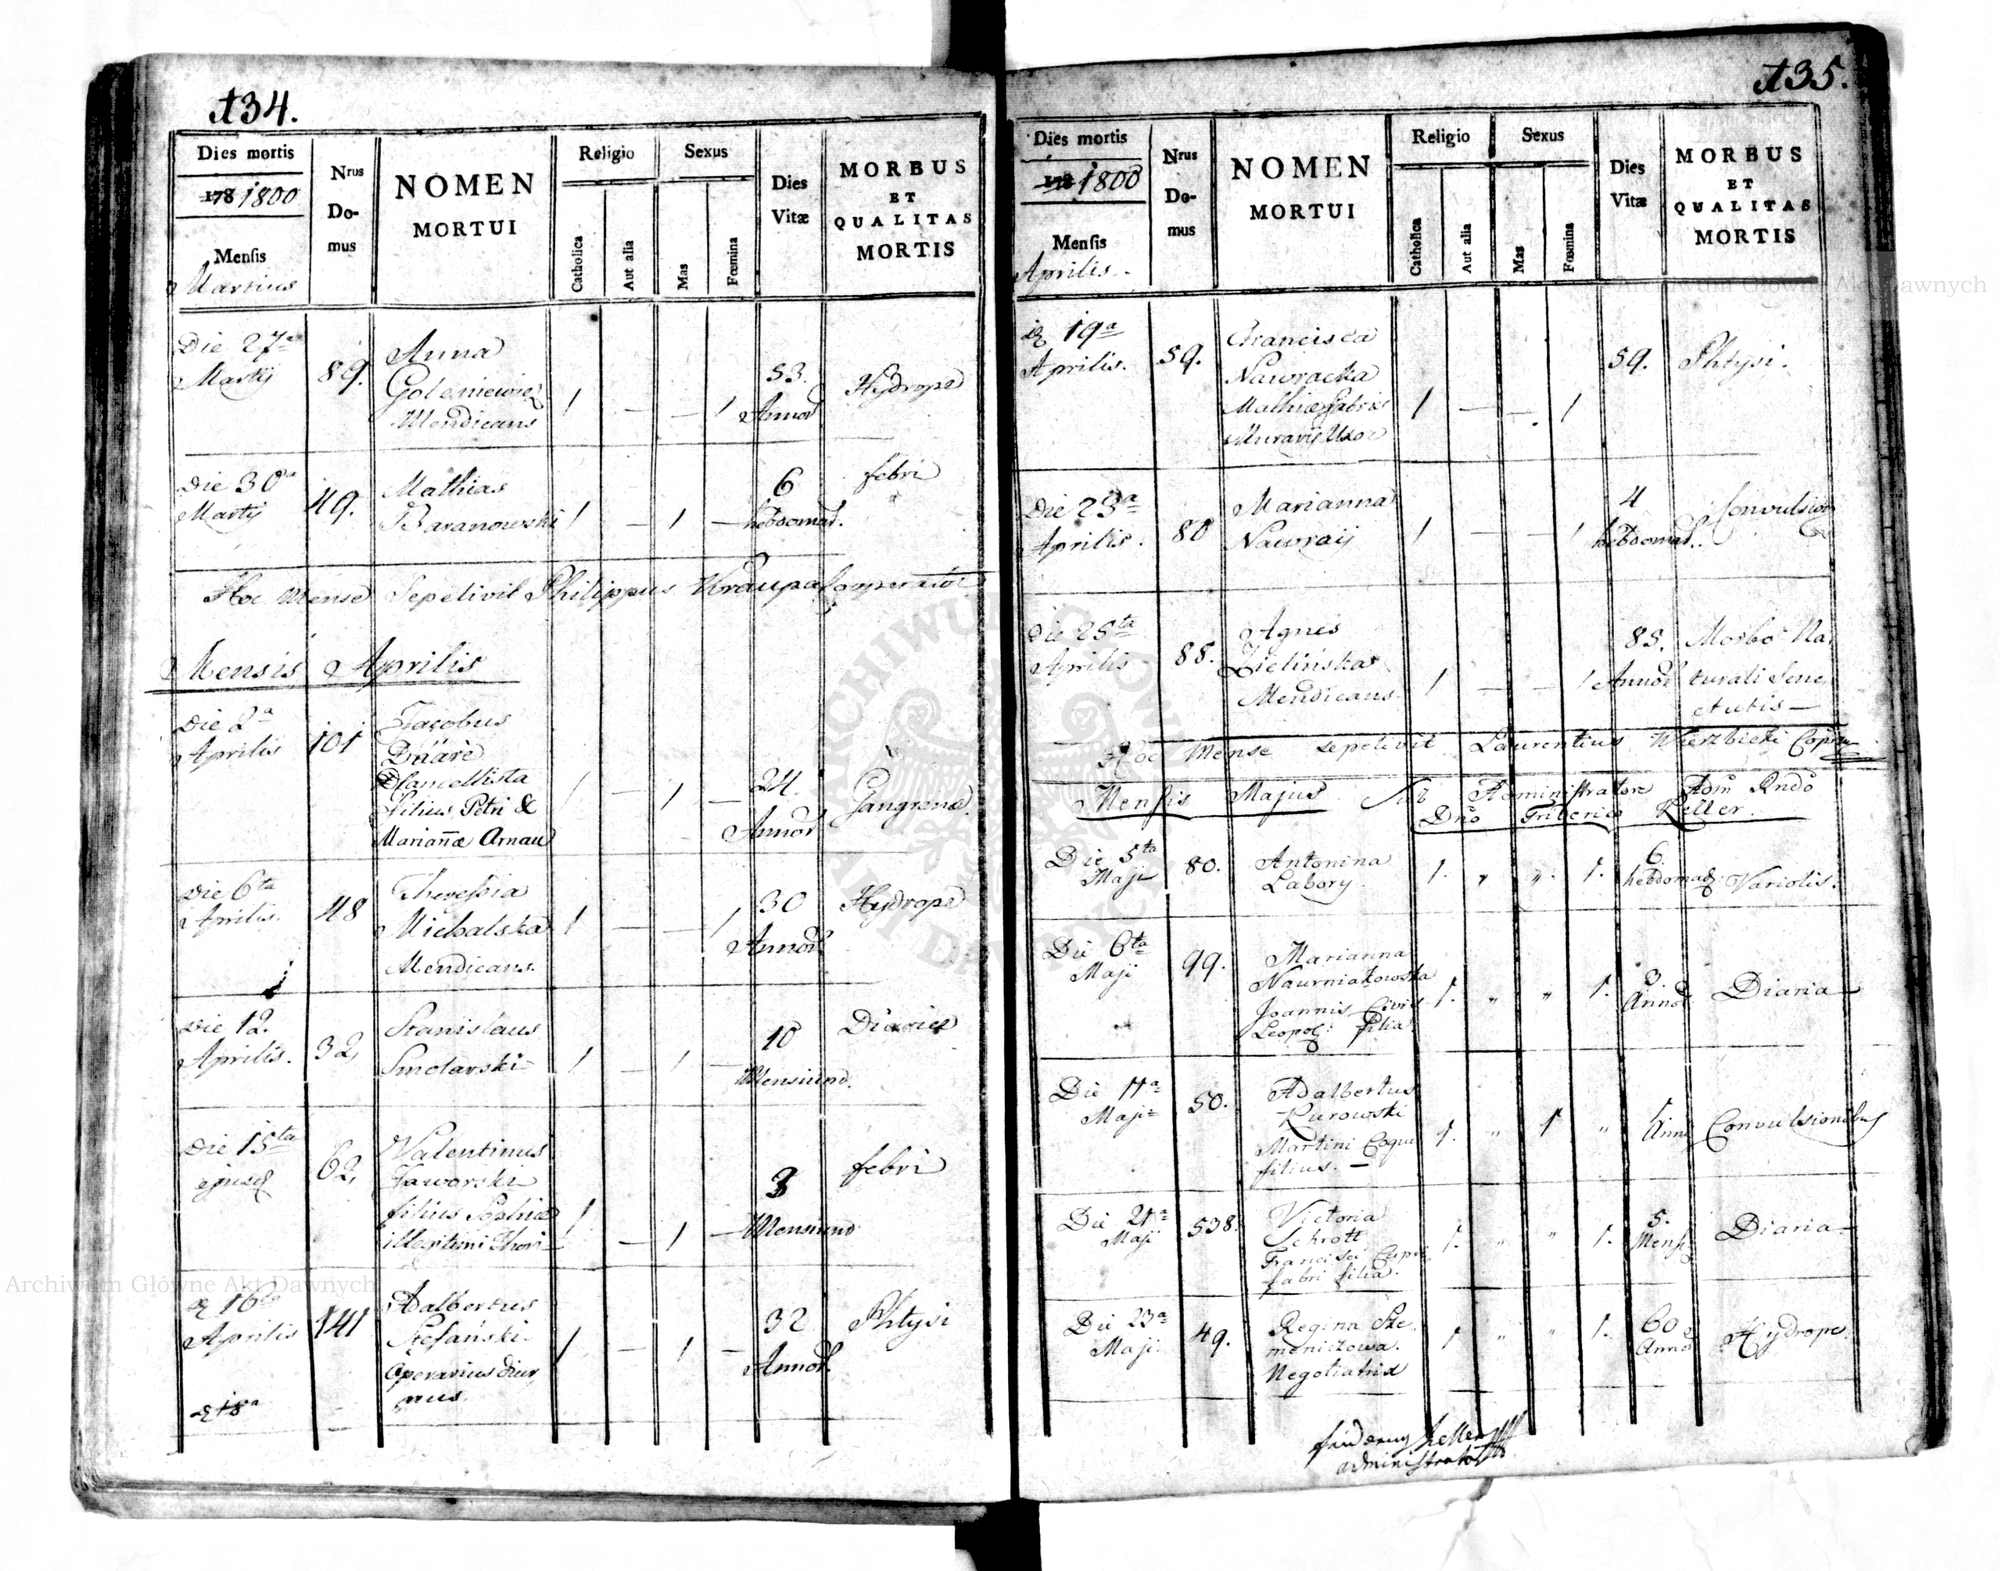 134.
Dies mortis
178 1800
Mensis
Martius
Nrus
Do-
mus
NOMEN
MORTUI
Religio
Catholica
Aut alia
Sexus
Mas
Fœmina
Dies
Vitæ
MORBUS
ET
QUALITAS
MORTIS
Die 27a
Martij
89.
Anna
Goleniewicz
Mendicans
1 — — 1
53.
Annor
Hydrope
Die 30a
Martij
49.
Mathias
Baranowski
1 — 1 —
6
hebdomad.
febri
Hoc Mense Sepelivit Philippus Kraupa Cooperator
Mensis Aprilis
Die 2a
Aprilis
101
Jacobus
Cancellista
Filius Petri &
Mariañæ Arnau
1 — 1 —
24.
Annor
Gangrena.
Die 6ta
Aprilis.
48
Theressia
Michalska
Mendicans.
1 — — 1
30
Annor
Hydrope
Die 12.
Aprilis.
32,
Stanislaus
Smolarski —
1 — 1 —
10
Mensiund.
Die 15ta
ejusd
62,
Valentinus
Jaworski
filius Sophiæ
illegitimi Thori —
1 — 1 —
3
Mensiund
febri
16ta
Aprilis
141
Adalbertus
Stefański
Operarius diur
nus.
1 — 1 —
32
Annor.
Phtysi
18a
135.
Dies mortis
178 1800
Mensis
Aprilis.
Nrus
Do-
mus
NOMEN
MORTUI
Religio
Catholica
Aut alia
Sexus
Mas
Fœmina
Dies
Vitæ
MORBUS
ET
QUALITAS
MORTIS
19a
Aprilis.
59.
Francisca
Nawracka
Mathiæ fabri
Murarij Uxor
1 — — 1
59.
Phtysi.
Die 23a
Aprilis.
80
Marianna
Nawraij
1 — — 1
4
hebdomad.
Convulsion
Die 25ta
Aprilis
88.
Agnes
Zielińska
Mendicans
1 — — 1
85.
Annor
Morbo Na
turali Sene
ctutis —
Hoc Mense sepelivit Laurentius Wierzbicki Coop
Mensis Majus Sub Administratore Adm Rndo
Dno Friderico Keller.
Die 5ta
Maji
80.
Antonina
Labory.
1. " " 1.
6.
hebdomad
Variolis.
Die 6ta
Maji
99.
Marianna
Naurniakowska
Joannis Civis
Leopol: filia
1. " " 1.
3
Annor
Diaria —
Die 11a
Maji
50.
Adalbertus
Kurowski
Martini Coqui
filius. —
1. " 1 "
1
Anni
Convulsionibus
Die 21a
Maji
538.
Victoria
Schrott
Francisci Cupri
fabri filia.
1. " " 1.
5.
Mens
Diaria —
Die 23a
Maji.
49.
Regina Sie
meniczowa.
Negotiatrix
1. " " 1.
60
Anno
Hydrope.
Keller
administrator
ARCHIWUM GŁÓWNE
AKT DAWNYCH
Archiwum Główne Akt Dawnych
Archiwum Główne Akt Dawnych